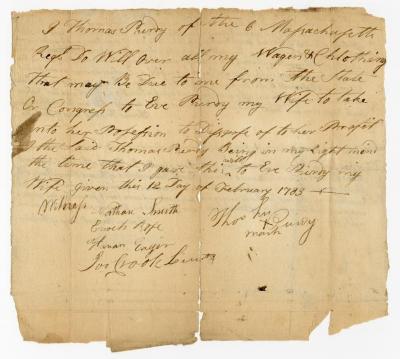 I Thomas Purdy of the 6 Massachusetts
Regt Do Will Over all my Wages & Chlothing
that may Be Due to me from the State
Or Congress to Eve Purdy my Wife to take
into her Possesion to Dispose of to her Profit
the said Thomas Purdy Being in my Right mind
the time that I gave this will to Eve Purdy my
Wife given this 12 Day of February 1783
Witness Nathan Smith
Enoch
Hiram Eager
Jos Crook
Thos Purdy
his
mark